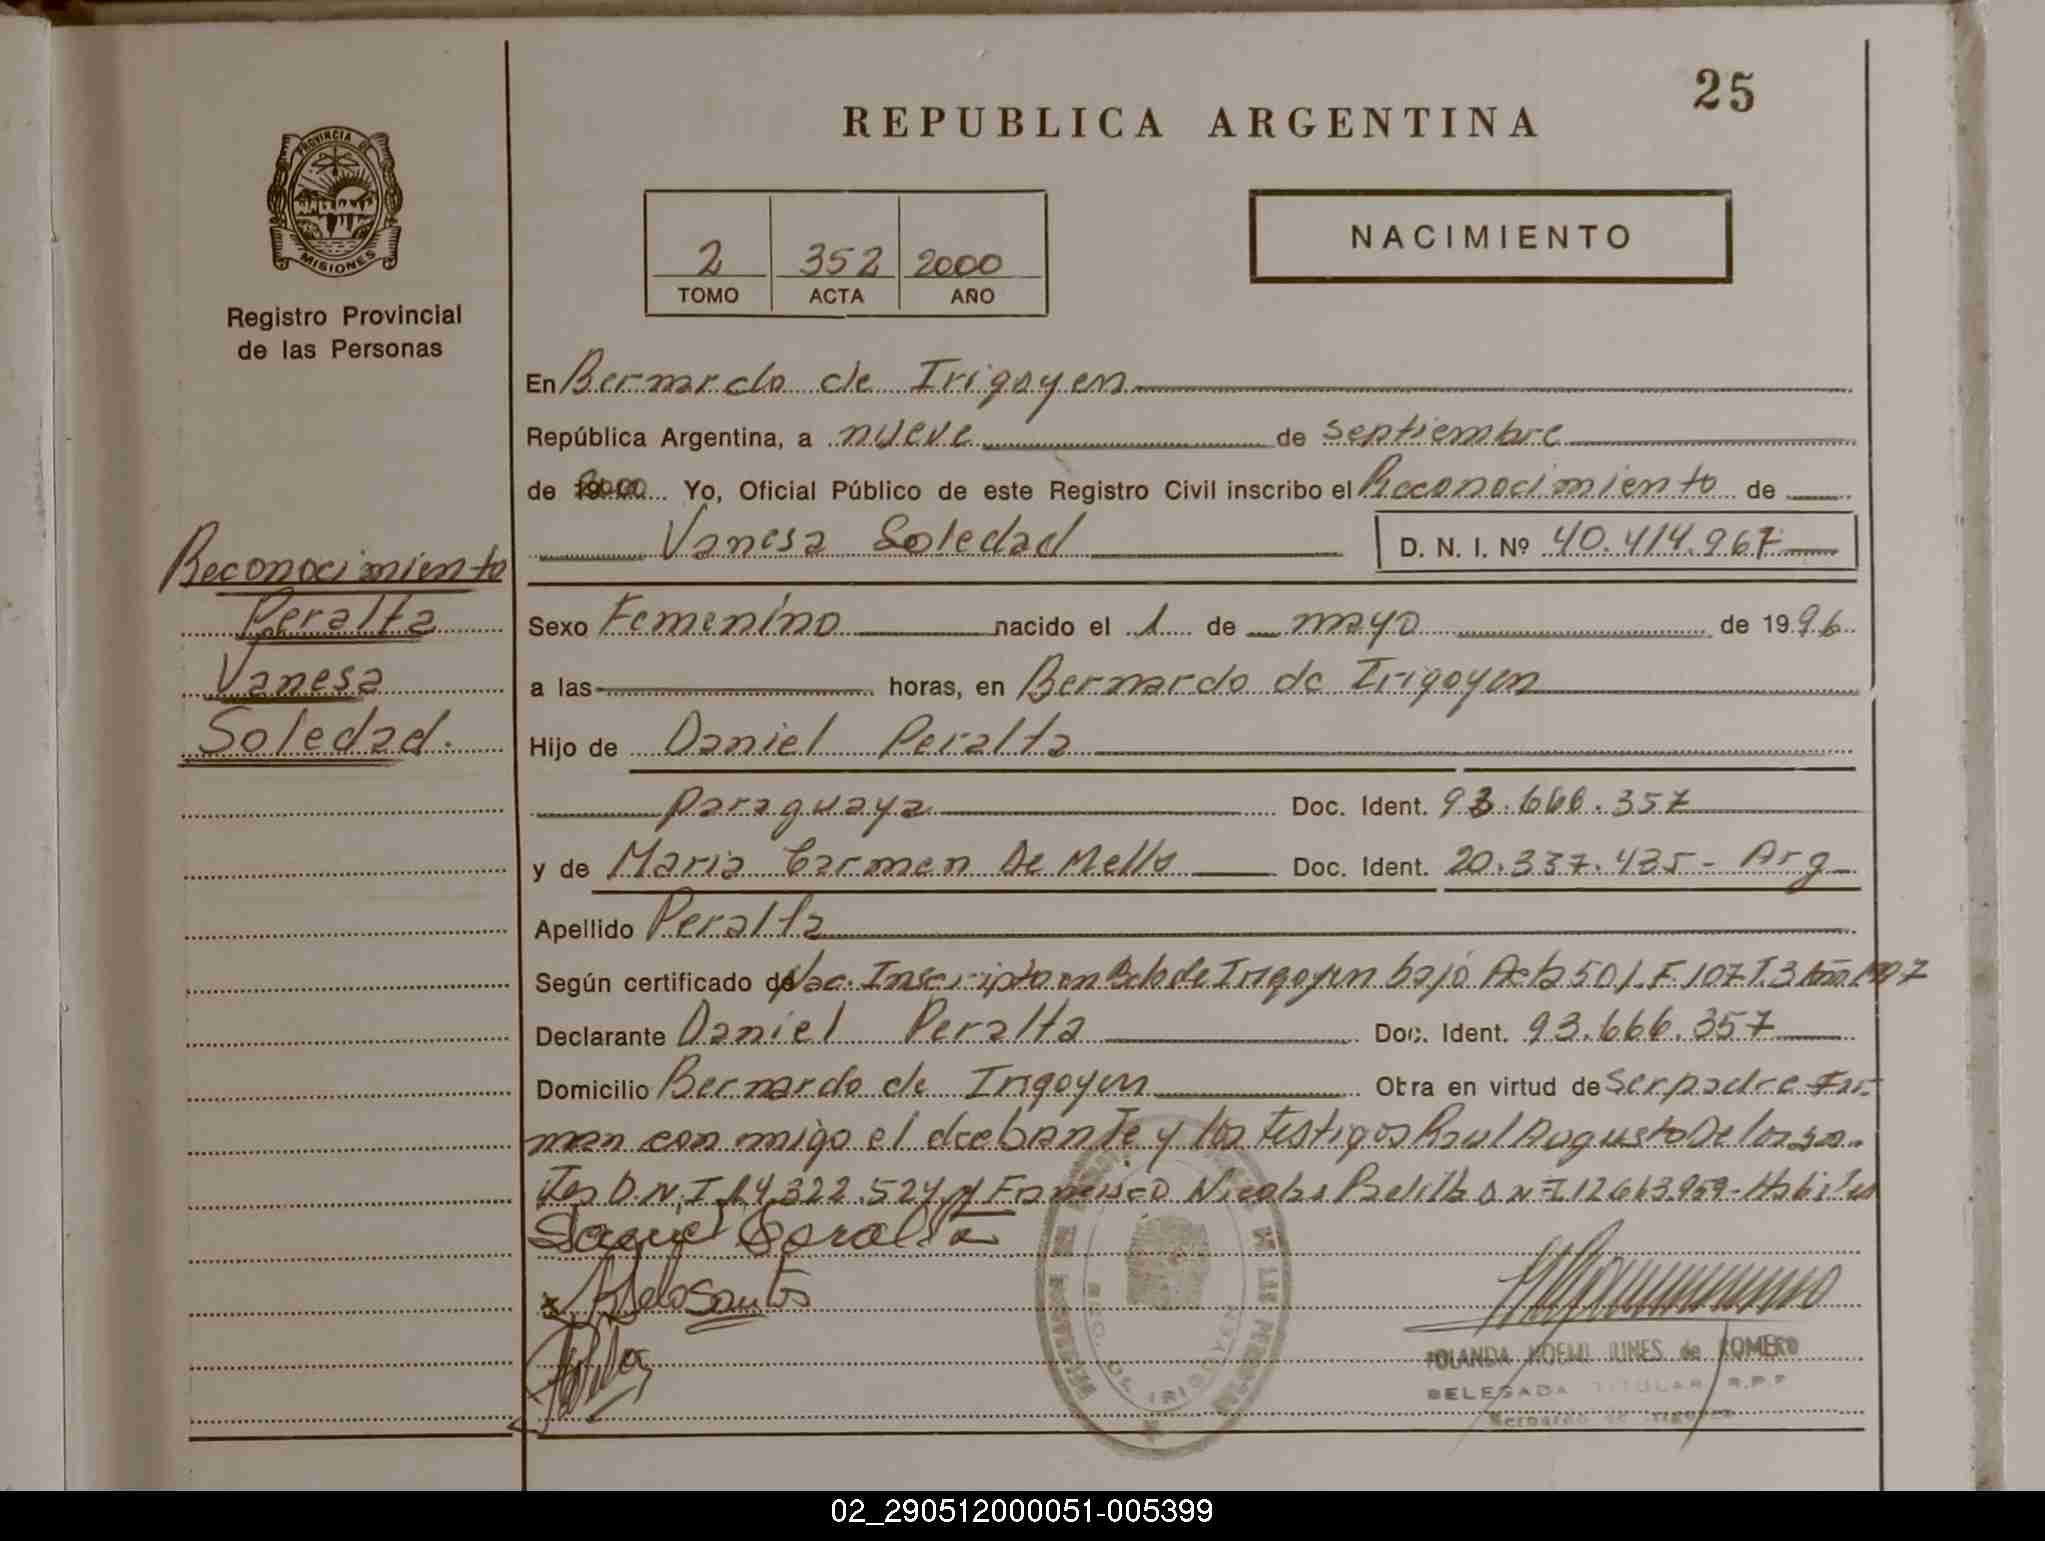 25
REPUBLICA ARGENTINA
PROVINCIA DE
MISIONES
Registro Provincial
de las Personas
2 352 2000
TOMO ACTA AÑO
NACIMIENTO
En Bernardo de Irigoyen
República Argentina, a nueve de septiembre
de 2000 Yo, Oficial Público de este Registro Civil inscribo el Reconocimiento de
Vanesa Soledad D. N. I. Nº 40.414.967
Reconocimiento
Peralta
Vanesa
Soledad.
Sexo Femenino nacido el 1 de mayo de 1996
a las horas, en Bernardo de Irigoyen
Hijo de Daniel Peralta
paraguaya Doc. Ident. 93.666.357
y de Maria Carmen De Mello Doc. Ident. 20.337.435- Arg
Apellido Peralta
Según certificado de Nac. Inscripto en Bdo de Irigoyen bajo Acta 501.F.107T.3 Año 1997
Declarante Daniel Peralta Doc. Ident. 93.666.357
Domicilio Bernardo de Irigoyen Obra en virtud de Ser padre Fir-
man con migo el declarante y los testigos Raul Augusto De los san-
tos D.N.I 14.322.524 y Francisco Nicolas D N I 12.613.959- Habiles
YOLANDA NOEMI de ROMERO
DELEGADA TITULAR R.P.P
Bernardo de Irigoyen
02_290512000051-005399